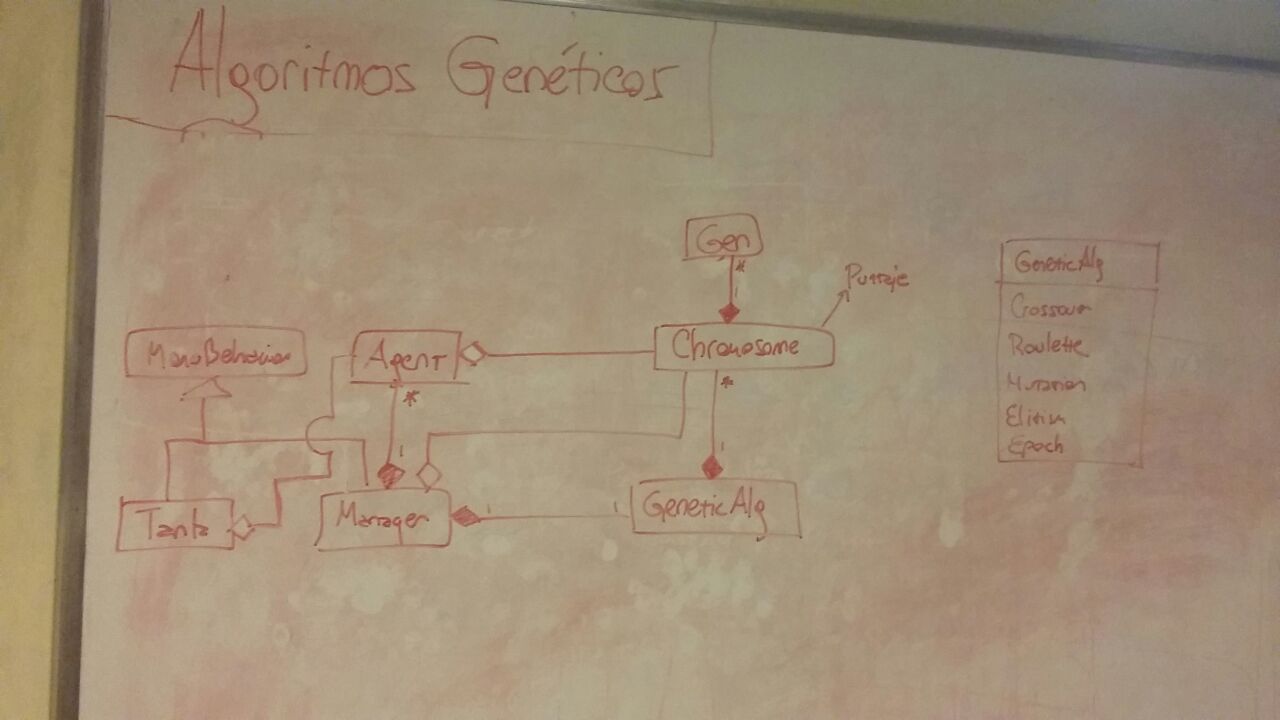 Algoritmos Genéticos
Gen
*
1
Puntaje
Chromosome
*
1
GeneticAlg
MonoBehavior
Agent
*
1
Tank
Manager
1
1
GeneticAlg
Crossover
Roulette
Mutation
Elitism
Epoch